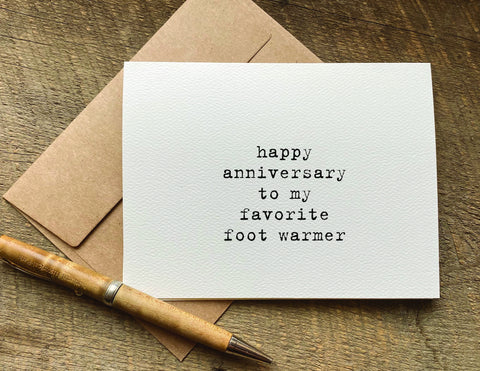 happy
anniversary
to my
favorite
foot warmer